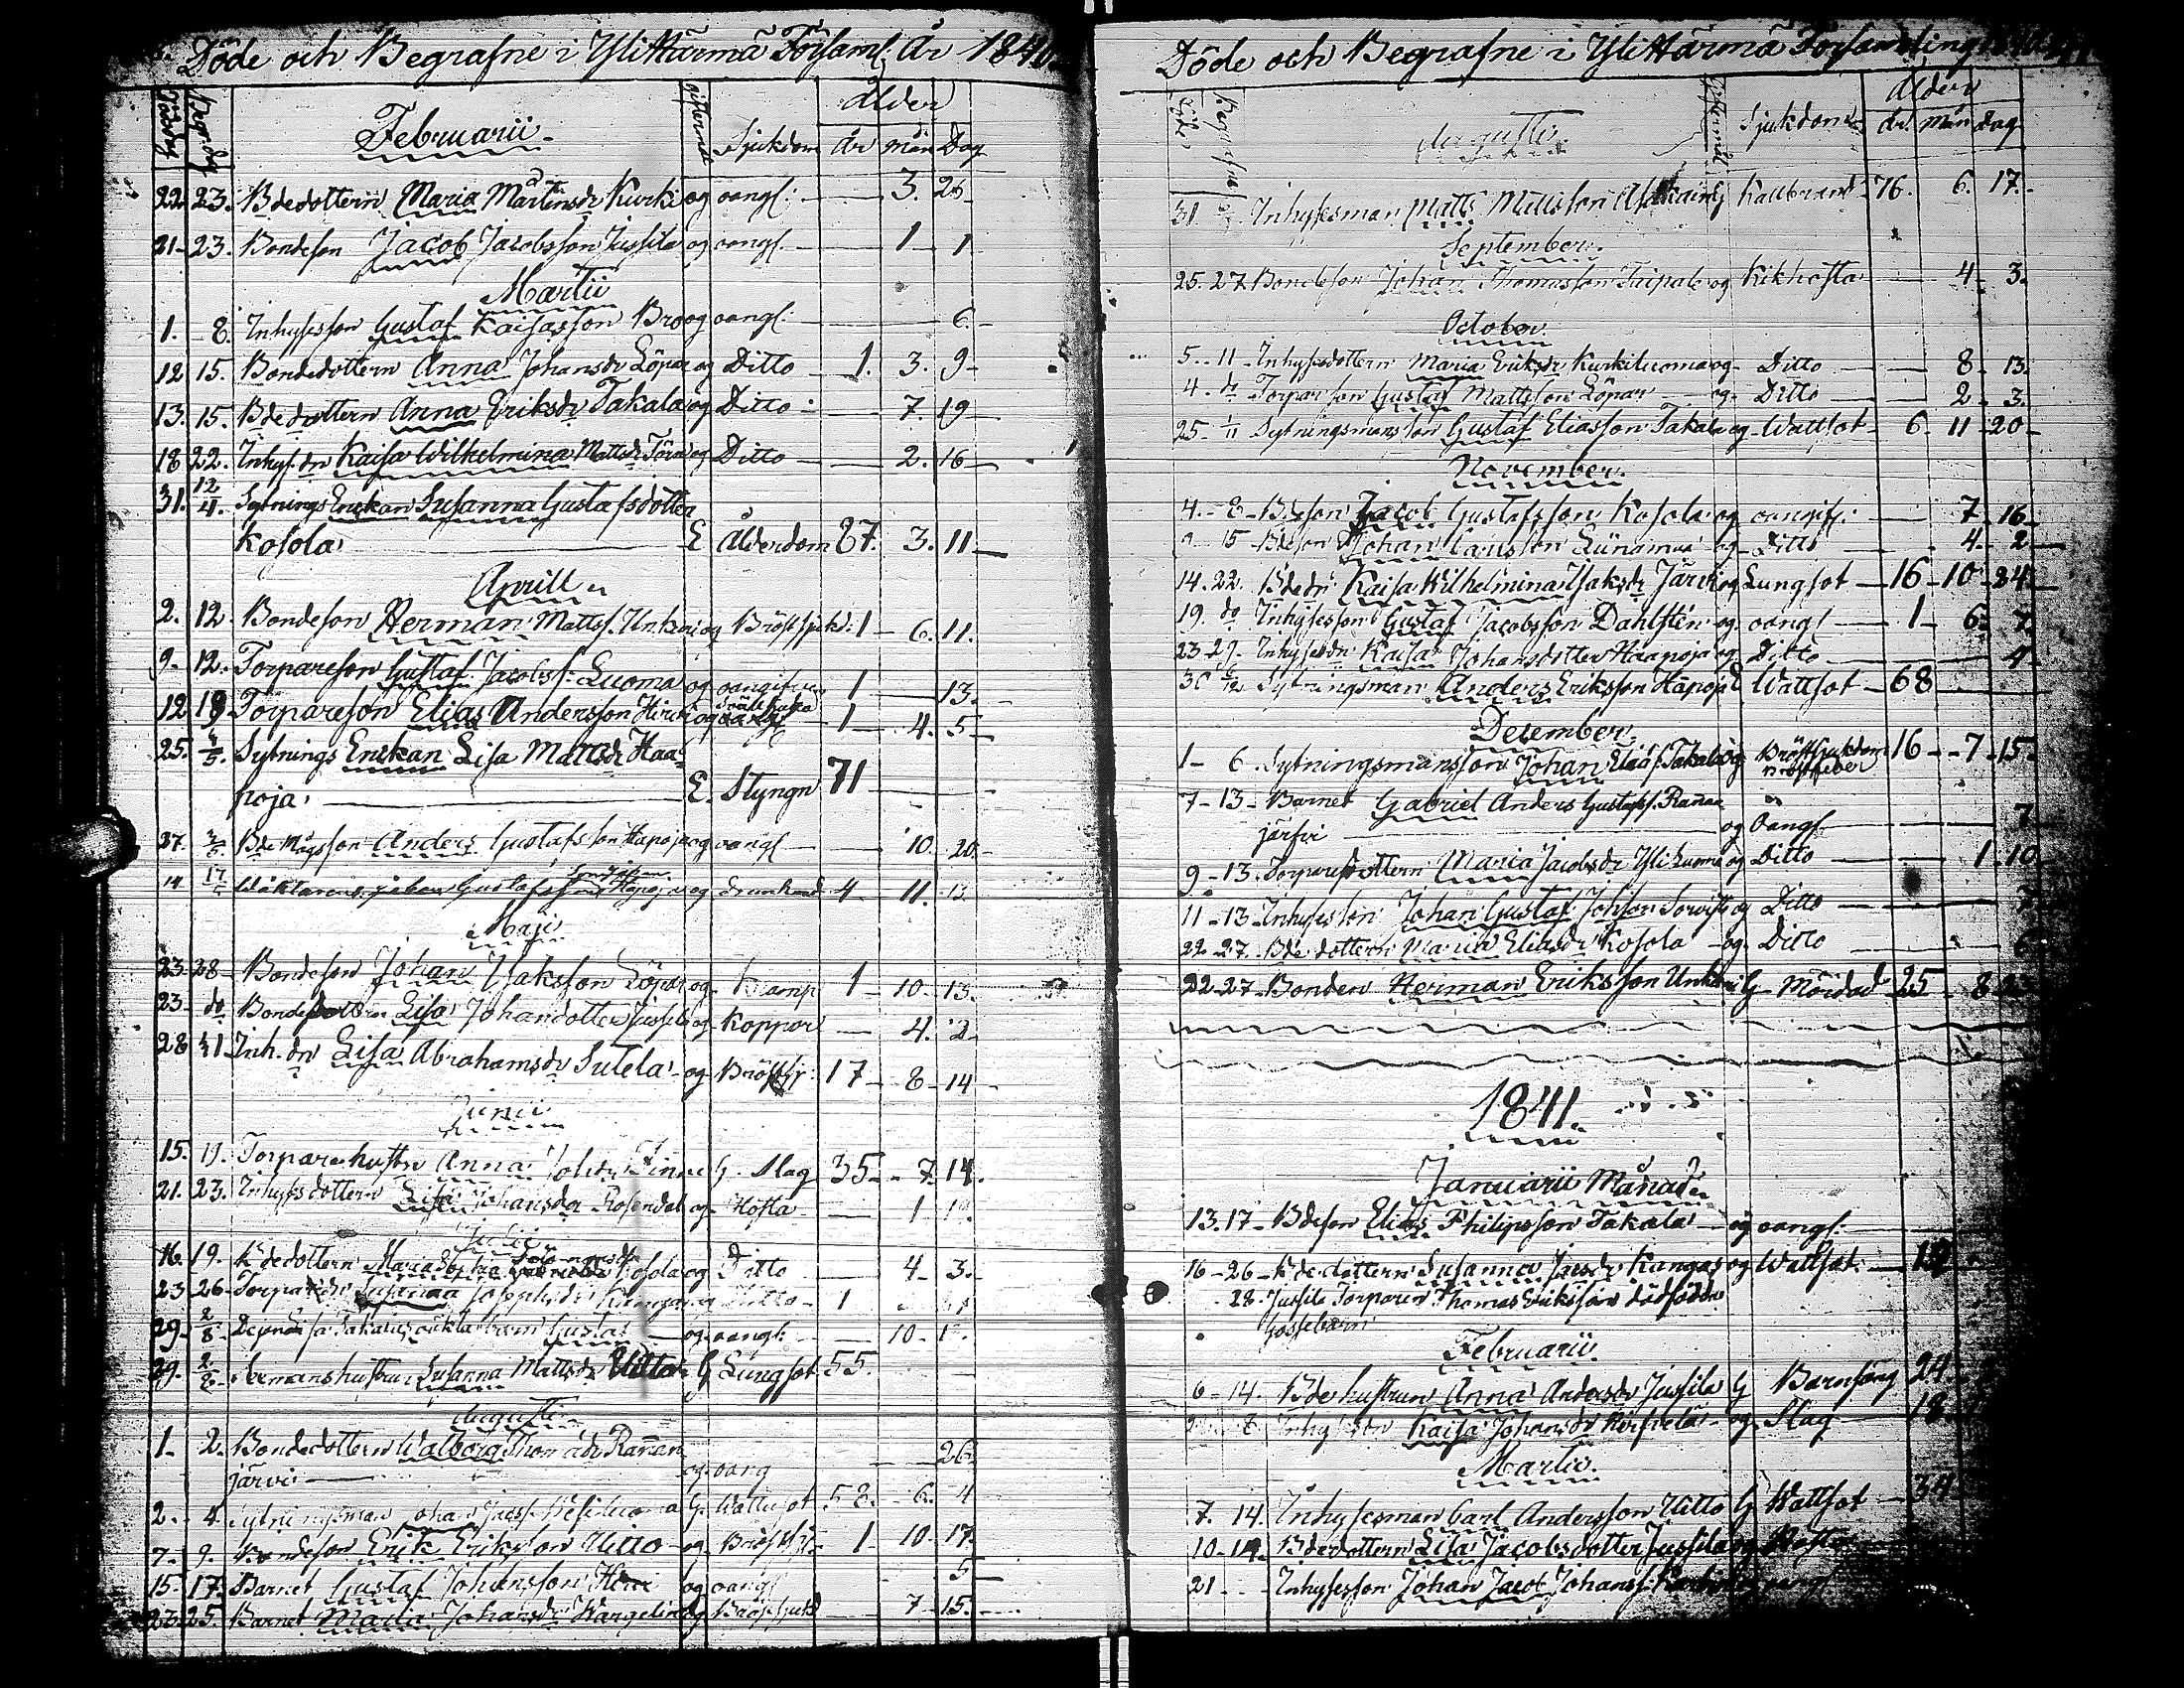 Döde och Begrafne i Ylihärmä Församl: År 1840
Dödsdag Begr.dag Februarii Giftermål Sjukdom Ålder År mån Dag
22. 23. Bdedottern Maria Mårtensdr Kurki og oangl: 3. 26
21 23. Bondeson Jacob Jacobsson Jussila og oangl. 1 1.
Martii
1. 8. Inhyseson Gustaf Kaisasson Bro og oangl: 6.
12 15. Bondedottern Anna Johansdr Löpar og Ditto 1. 3. 9
13. 15. Bdedottern Anna Eriksdr Takala og Ditto 7. 19
18 22. Inhys. dr Kaisa Wilhelmina Mattsdr og Ditto 2. 16
31. 12/4. Sytnings Enckan Susanna Gustafsdotter
Kosola E Ålderdom 87. 3. 11
Aprill
2. 12. Bondeson Herman Mattss. Unkuri og Bröstsjukd: 1 6. 11.
9. 12. Torpareson Gustaf Jacobss: Luoma og oangifven 1 13.
12 19 Torpareson Elias Andersson Hirvi og 1 4. 5
25. 4/5. Sytnings Enckan Lisa Mattsdr Haa
poja. E. Styngn 71
27. 3/5 Bde Mågsson Anders Gustafsson Hapoja og oangl 10. 20.
14 17/5 Gustafsson Hapoja og drunknad 4 11. 13
Maji
23 28 Bondeson Johan Isaksson Löpar og Kramp 1 10. 13.
23 do Bondedottern Lisa Johansdotter Jussila og Koppor 4. 2
28 31 Inh. dr Lisa Abrahamsdr Sutela og Bröstsj: 17 8 14
Junii
15. 19. Torparehustr Anna Johsdr Finne G. Slag 35 7. 14.
21. 23. Inhysesdottern Lisa Johansdr Rosendal og Hosta 1
Julii
16. 19. Bdedottern Maria Sophia Salomonsdr Kosola og Ditto 4 3.
23 26 Torparedr Susanna Josephsdr Kangas og Ditto 1
29 2/8 Lisa Takalas oäkta barn Gustaf og oangl: 10
29. 2/8 hustrun Susanna Mattsdr Uitto G Lungsot 55.
Augusti
1 2. Bondedottern Walborg Thomasdr Rannan
järvi og oang 26
2. 4. Sytningsman Johan Jacss. Wesiluoma G. Wattusot 58. 6. 4
7 9. Bondeson Erik Eriksson Uitto og Bröstsj: 1 10. 17.
15 17. Barnet Gustaf Johansson Hirvi og oangl 5
22. 25. Barnet Maria Johansdr Wargelin og Bröstsjukd 7 15.
Döde och Begrafne i Ylihärmä Församling
Augusti Giftermål Sjukdom Ålder År Mån dag
31 Inhysesman Matts Mattsson Kallbrand 76. 6. 17.
September
25. 27 Bondeson Johan Thomasson Taipale og Kikhosta 4 3.
October
5. 11 Inhysesdottern Maria Eriksdr Kurkiluoma og Ditto 8 13.
4. do Torpar son Gustaf Mattsson Löpar og Ditto 2 3.
25 1/11 Sytningsmans son Gustaf Eliasson Takala og Wattsot 6 11 20
November
4. 8 Bdeson Jacob Gustafsson Kosola og oangif: 7 16
15 Bdeson Johan Carlsson og Ditto 4 2
14. 22. Bdedr Kaisa Wilhelmina Isaksdr Järvi og Lungsot 16 10 24
19. do Inhyseson Gustaf Jacobsson Dahlstén og oangl 1 6 7.
23 29. Inhysedr Kaisa Johansdotter Haapoja og Ditto 4
30 6/12 Sytningsman Anders Eriksson Hapoja E Wattsot 68
December
1 6. Sytningsmansson Johan Eliass. Takala og Bröstsjukdom 16 7 15.
Bröstfeber
7 13 Barnet Gabriel Anders Gustafss. Rannan
järfvi og Oangl 7
9 13. Torparedottern Maria Jacobsdr Yli Luoma og Ditto 1 10
11 13 Inhyseson Johan Gustaf Johsson og Ditto 7
22 27. Bde dottern Maria Eliasdr Kosola og Ditto 6
22 27 Bonden Herman Eriksson Unkuri G Mördad 25 8
1841.
Januarii Månad
13. 17 Bdeson Elias Philipsson Takala og oangl:
16 26 Bde dottern Susanna Jacsdr Kangas og Wattsot 19
28. Jussila Torparen Thomas Eriksson dödfödde
gossebarn
Februarii
6 14. Bde hustrun Anna Andersdr Jussila G Barnsäng 24
Inhysesdr Kaisa Johansdr og Slag 18
Martii
7. 14. Inhysesman Carl Andersson Uitto G Wattsot 34
10 14. Bdedottern Lisa Jacobsdotter Jussila og Hosta
21 Inhyseson Johan Jacob Johanss.